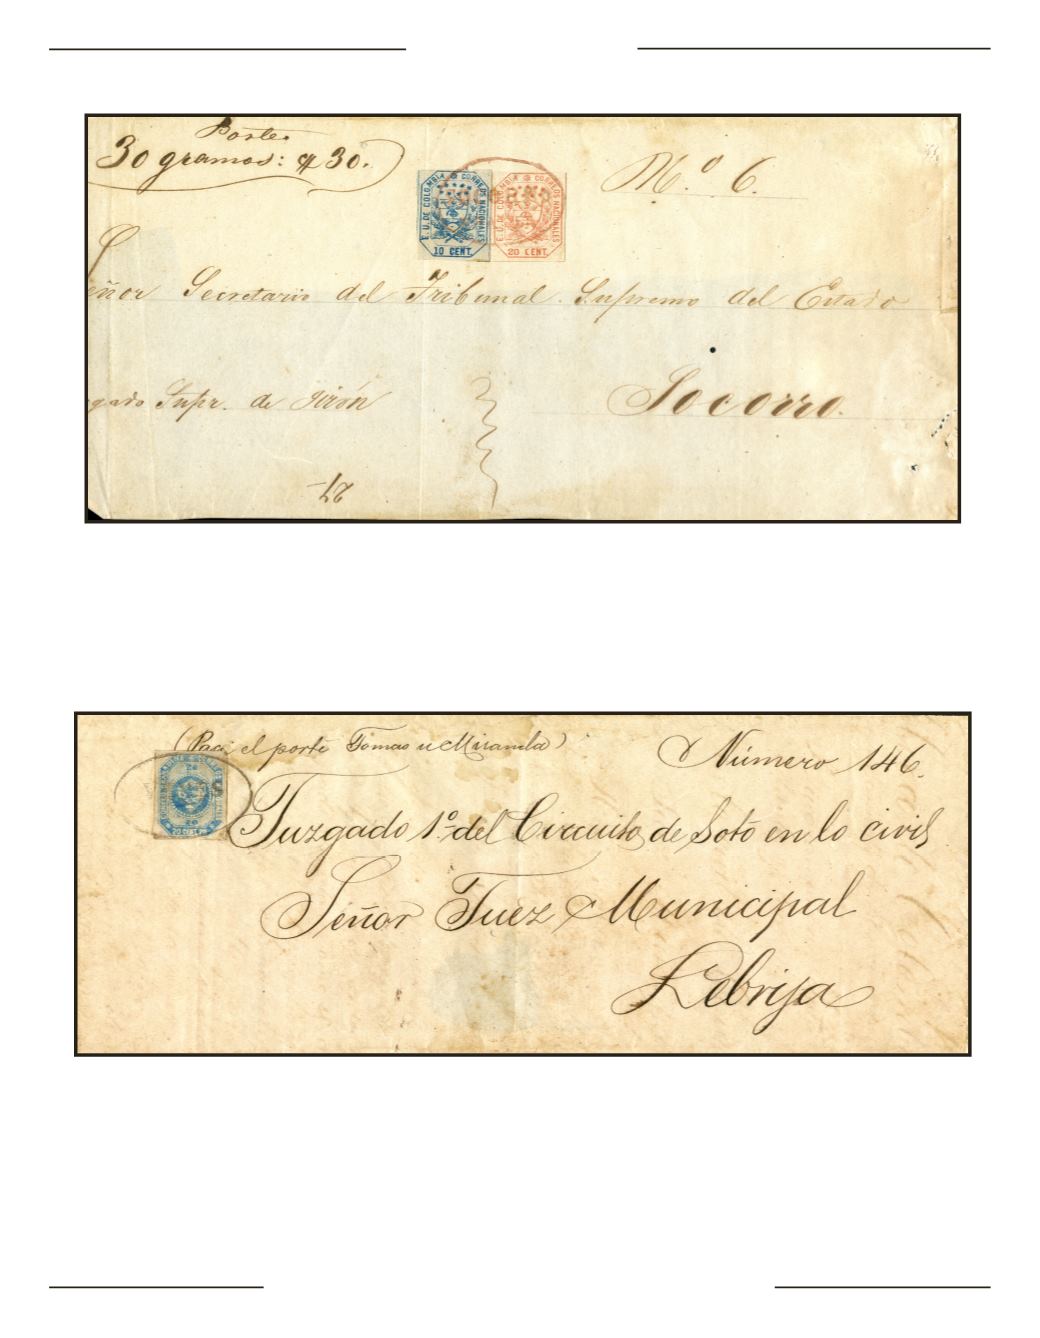 Porte
30 gramos: $ 30.
N.º 6.
E. U. DE COLOMBIA CORREOS NACIONALES
10 CENT.
E. U. DE COLOMBIA CORREOS NACIONALES
20 CENT.
eñor Secretario del Tribunal Supremo del Estado
gado Supr. de Girón
Socorro.
27
(Pagó el porte Tomas Miranda)
Número 146.
20 CENT
Juzgado 1º del Circuito de Soto en lo civil
Señor Juez Municipal
Lebrija